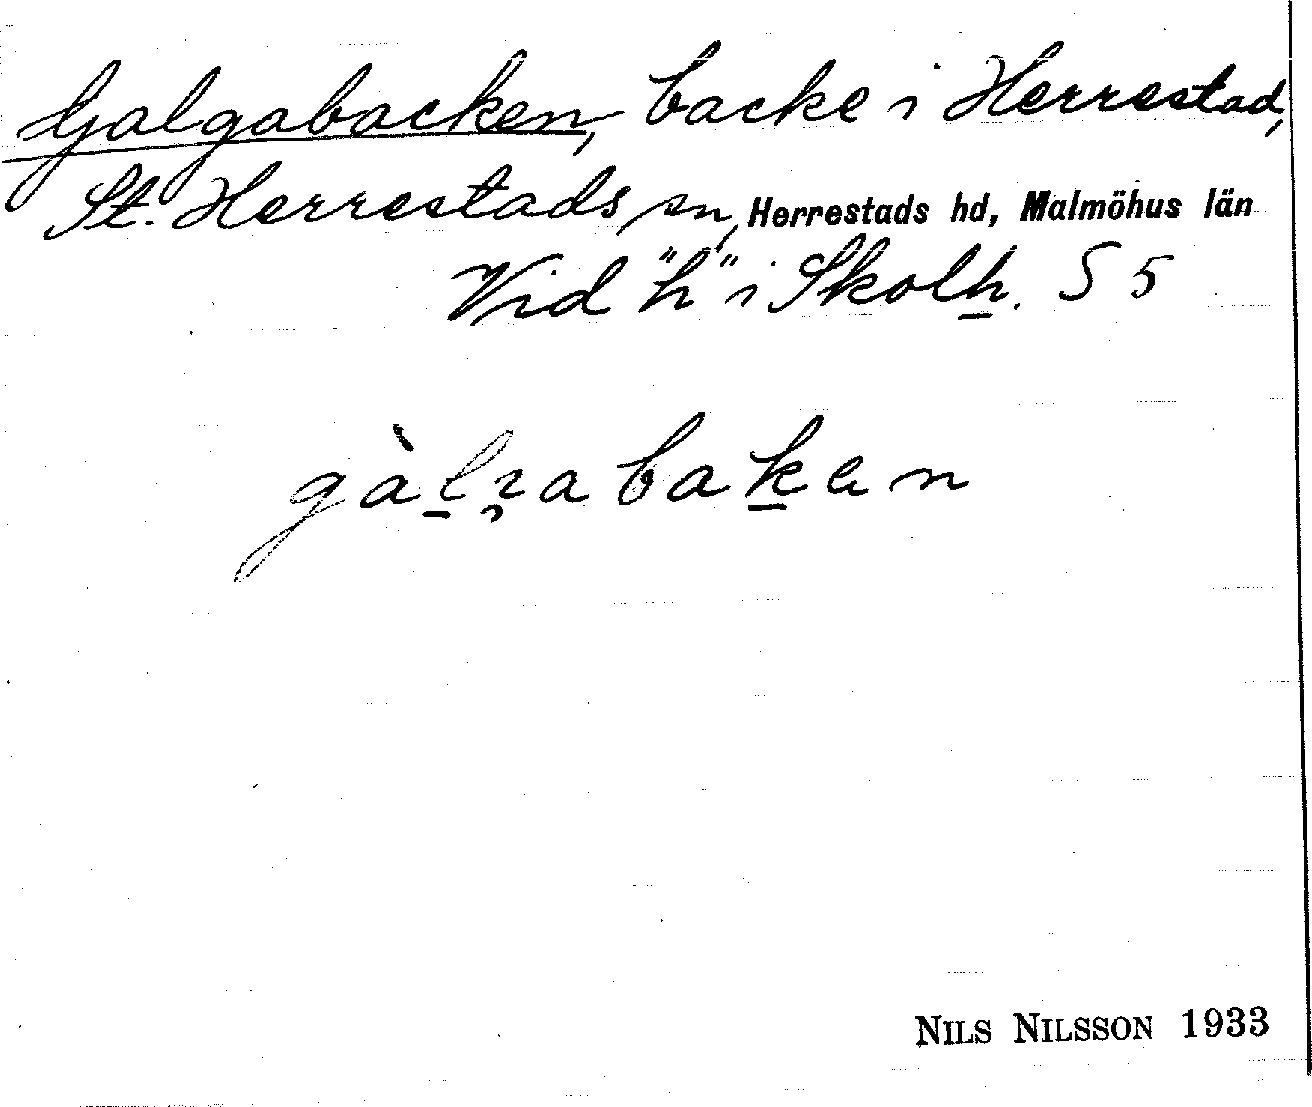 Galgabacken, backe i Herrestad,
St. Herrestads sn, Herrestads hd, Malmöhus län
Vid "h" i Skolh. S 5
gàl̠ɿ̡abak̠en
NILS NILSSON 1933